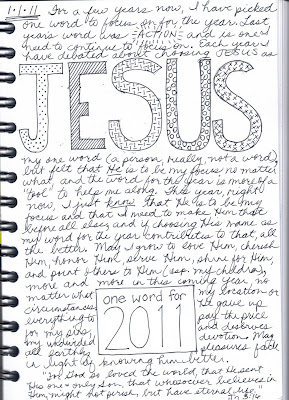 1.1.11 For a few years now, I have picked
one word to focus on for the year. Last
year's word was ACTION and is one I
need to continue to focus on. Each year I
have debated about choosing JESUS as
JESUS
my one word (a person, really, not a word)
but felt that He is to be my focus no matter
what, and the word for the year is more of a
"tool" to help me along. This year, right
now, I just know that He is to be my
focus and that I need to make Him that
before all else, and if choosing His name as
my word for the year contributes to that, all
the better. May I grow to love Him, cherish
Him, honor Him, serve Him, shine for Him,
and point others to Him (esp. my children),
more and more in this coming year, no
matter what my location or
circumstances. He gave up
everything to pay the price
for my sins, and deserves
my undivided devotion. May
all earthly pleasures fade
in light of knowing Him better.
one word for
2011
"For God so loved the world, that He sent
His one and only son, that whosoever believes in
Him might not perish, but have eternal life."
Jn. 3:16